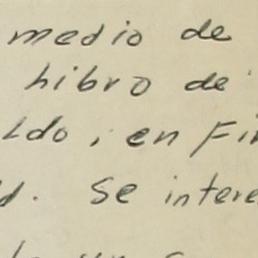 medio de
hibro de
ldo, en Fi
d. Se intere